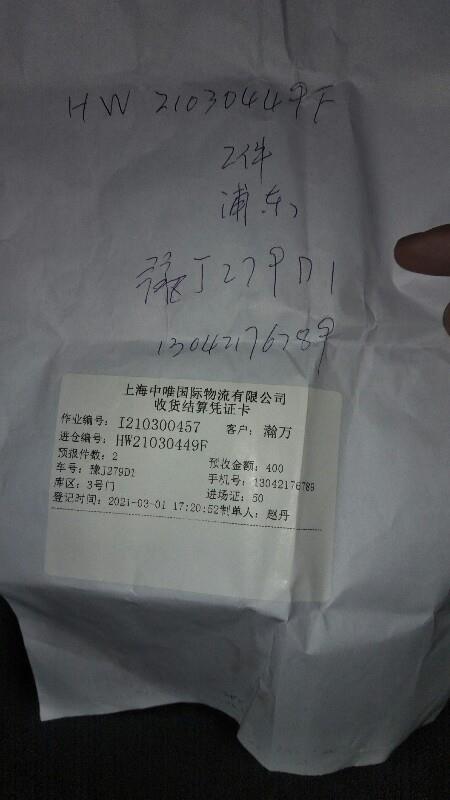 HW 21030449F
2件
浦东
豫J279D1
13042176789
上海中唯国际物流有限公司
收货结算凭证卡
作业编号: I210300457 客户: 瀚万
进仓编号: HW21030449F
预报件数: 2 预收金额: 400
车号: 豫J279D1 手机号: 13042176789
库区: 3号门 进场证: 50
登记时间: 2021-03-01 17:20:52制单人: 赵丹